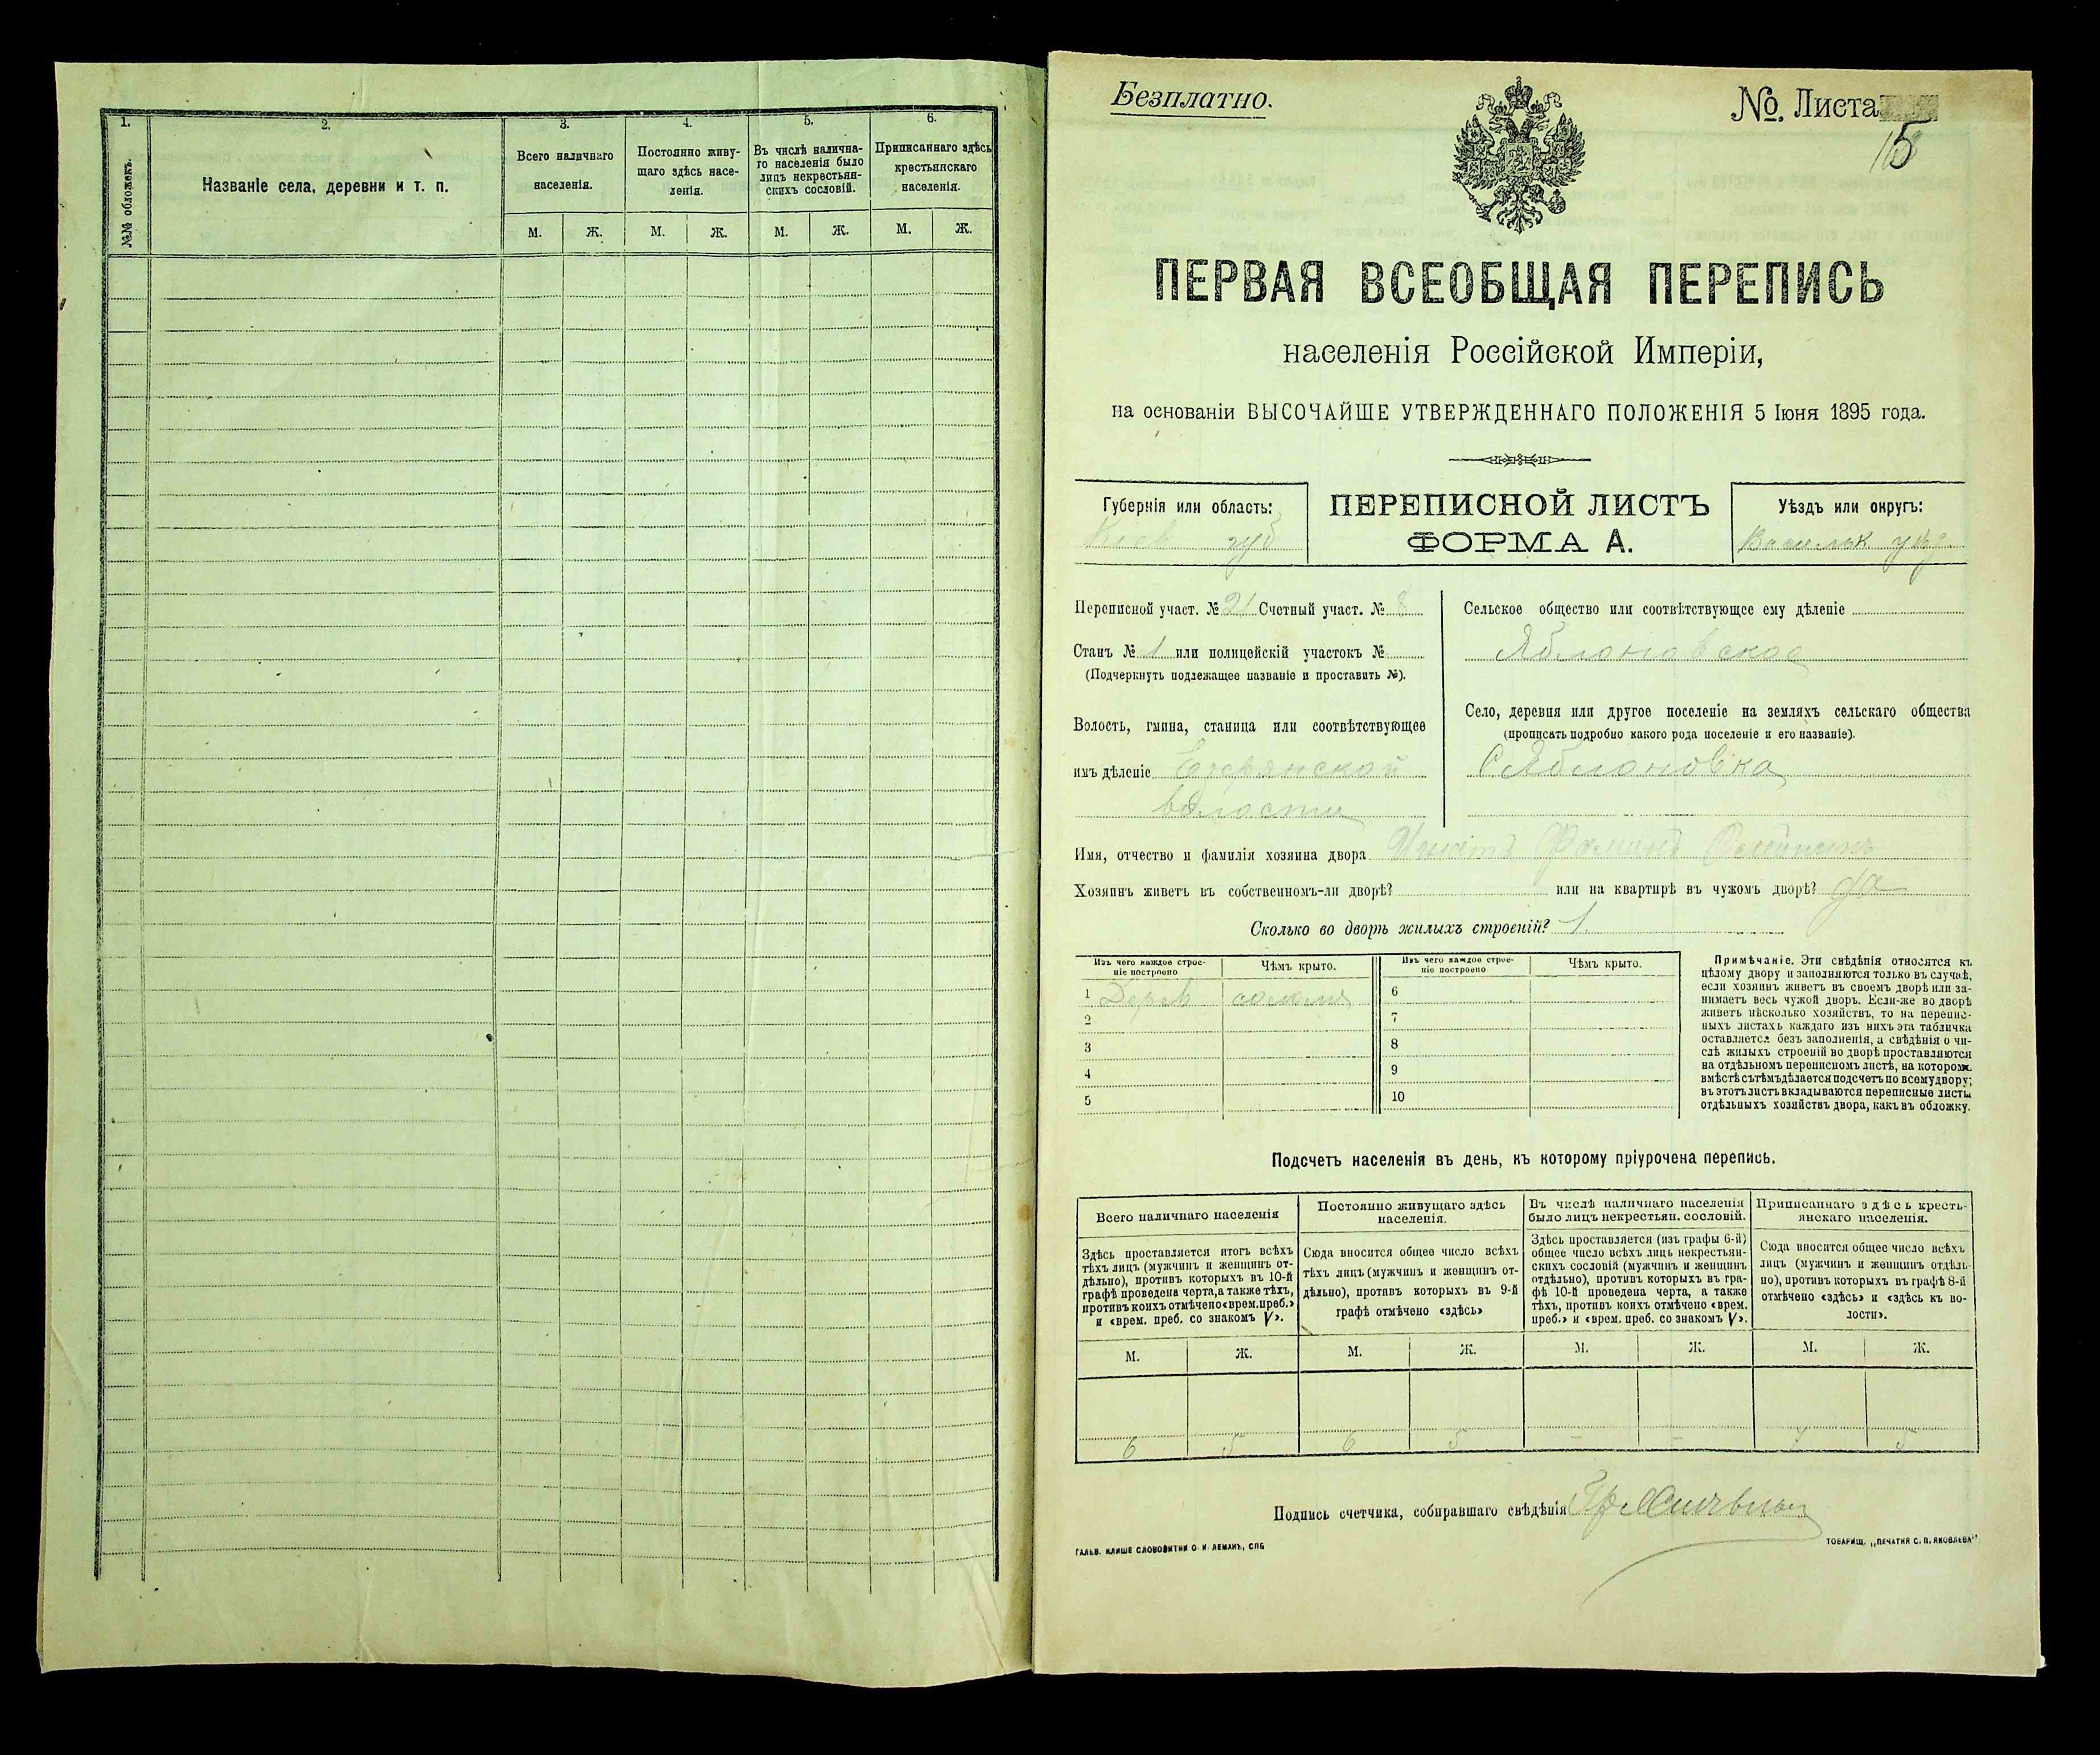 1.
2.
3.
4.
5.
6.
№№ обложекъ.
Названіе села, деревни и т. п.
Всего наличнаго
населенія.
Постоянно живу-
щаго здѣсь насе-
ленія.
Въ числѣ налична-
го населенія было
лицъ некрестьян-
скихъ сословій.
Приписаннаго здѣсь
крестьянскаго
населенія.
М.
Ж.
М.
Ж.
М.
Ж.
М.
Ж.
Безплатно.
№. Листа
5
ПЕРВАЯ ВСЕОБЩАЯ ПЕРЕПИСЬ
населенія Россійской Имперіи,
на основаніи ВЫСОЧАЙШЕ УТВЕРЖДЕННАГО ПОЛОЖЕНІЯ 5 Іюня 1895 года.
Губернія или область:
Кіев губ
ПЕРЕПИСНОЙ ЛИСТЪ
ФОРМА А.
Уѣздъ или округъ:
Васильк уѣз.
Переписной участ. № 21 Счетный участ. № 8
Станъ № 1 или полицейскій участокъ №
(Подчеркнуть подлежащее названіе и проставить №).
Волость, гмина, станица или соотвѣтствующее
имъ дѣленіе Езерянской
волости
Сельское общество или соотвѣтствующее ему дѣленіе
Яблоновское
Село, деревня или другое поселеніе на земляхъ сельскаго общества
(прописать подробно какого рода поселеніе и его названіе).
С Яблоновка
Имя, отчество и фамилія хозяина двора Игнатъ
Хозяинъ живетъ въ собственномъ-ли дворѣ? или на квартирѣ въ чужомъ дворѣ? да
Сколько во дворѣ жилыхъ строеній? 1
Изъ чего каждое строе-
ніе построено
Чѣмъ крыто.
Изъ чего каждое строе-
ніе построено
Чѣмъ крыто.
1 Дерев солома
2
3
4
5
6
7
8
9
10
Примѣчаніе. Эти свѣдѣнія относятся къ
цѣлому двору и заполняются только въ случаѣ,
если хозяинъ живетъ въ своемъ дворѣ или за-
нимаетъ весь чужой дворъ. Если-же во дворѣ
живетъ нѣсколько хозяйствъ, то на перепис-
ныхъ листахъ каждаго изъ нихъ эта табличка
оставляется безъ заполненія, а свѣдѣнія о чи-
слѣ жилыхъ строеній во дворѣ проставляются
на отдѣльномъ переписномъ листѣ, на которомъ
вмѣстѣ съ тѣмъ дѣлается подсчетъ по всему двору;
въ этотъ листъ вкладываются переписные листы
отдѣльныхъ хозяйствъ двора, какъ въ обложку.
Подсчетъ населенія въ день, къ которому пріурочена перепись.
Всего наличнаго населенія
Здѣсь проставляется итогъ всѣхъ
тѣхъ лицъ (мужчинъ и женщинъ от-
дѣльно), противъ которыхъ въ 10-й
графѣ проведена черта, а также тѣхъ,
противъ коихъ отмѣчено «врем. преб.»
и «врем. преб. со знакомъ V».
Постоянно живущаго здѣсь
населенія.
Сюда вносится общее число всѣхъ
тѣхъ лицъ (мужчинъ и женщинъ от-
дѣльно), противъ которыхъ въ 9-й
графѣ отмѣчено «здѣсь»
Въ числѣ наличнаго населенія
было лицъ некрестьян. сословій.
Здѣсь проставляется (изъ графы 6-й)
общее число всѣхъ лицъ некрестьян-
скихъ сословій (мужчинъ и женщинъ
отдѣльно), противъ которыхъ въ гра-
фѣ 10-й проведена черта, а также
тѣхъ, противъ коихъ отмѣчено «врем.
преб.» и «врем. преб. со знакомъ V».
Приписаннаго здѣсь кресть-
янскаго населенія.
Сюда вносится общее число всѣхъ
лицъ (мужчинъ и женщинъ отдѣль-
но), противъ которыхъ въ графѣ 8-й
отмѣчено «здѣсь» и «здѣсь къ во-
лости».
М. Ж. М. Ж. М. Ж. М. Ж.
6 5 6 5 – – 5
Подпись счетчика, собиравшаго свѣдѣнія
ГАЛЬВ. КЛИШЕ СЛОВОЛИТНИ О. И. ЛЕМАНЪ, СПБ
ТОВАРИЩ. „ПЕЧАТНЯ С. П. ЯКОВЛЕВА"